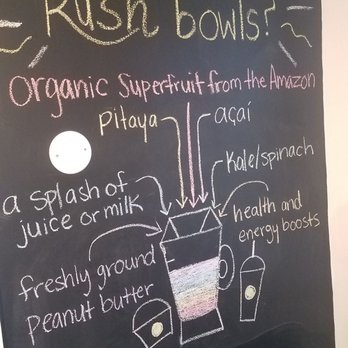 Rush bowls?
Organic Superfruit from the Amazon
Pitaya
açaí
Kale/spinach
a splash of
juice or milk
health and
energy boosts
freshly ground
peanut butter